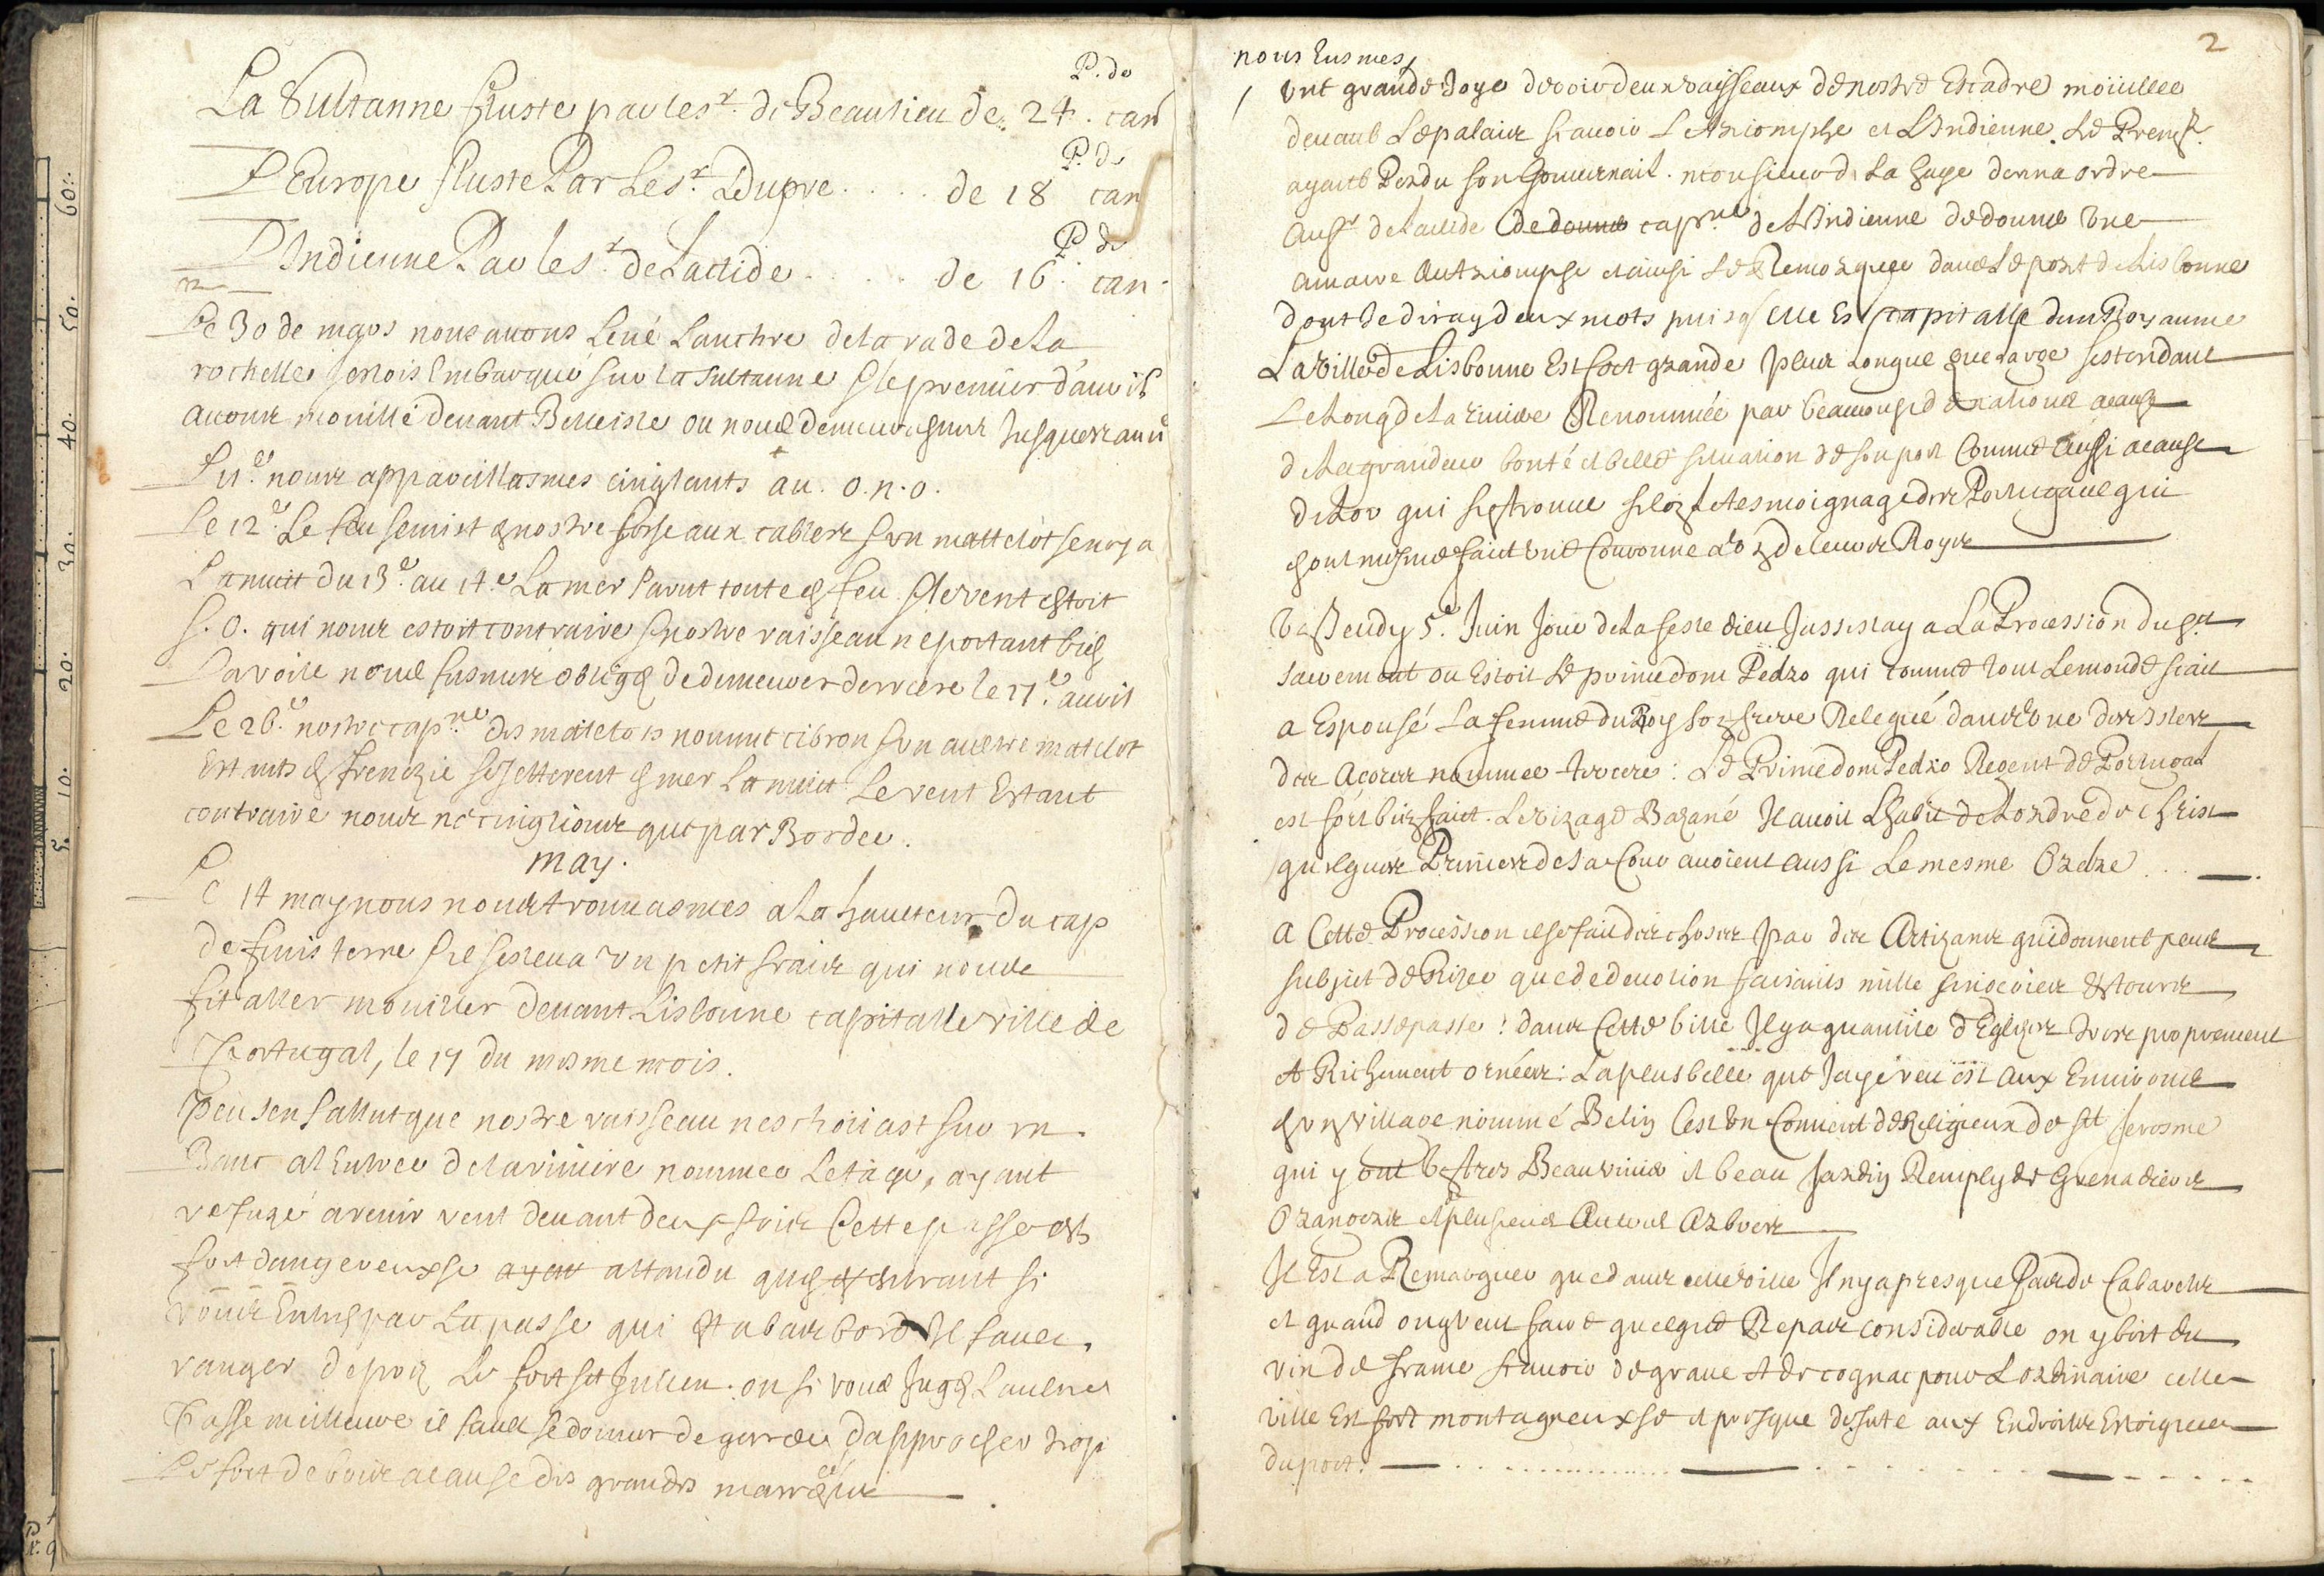 P. de
La Sultanne fluste par le sr. de Beaulieu de 24. can
P. de
L'Europe fluste Par Le sr. Dupre .... de 18 can
P. de
L'Indienne Par le sr. de Lactide ..... de 16. can.
Le 30 de mars nous auons Leué Lanchre de la rade de La
rochelle Jestois Embarqué sur la Sultanne & le premier d'auril
auons mouillé deuant Belleisle ou nous demeurasmes Jusques au 11e
L'11e. nous appareillasmes cinglants au. o.n.o.
Le 12e. Le feu se mist a nostre fosse aux cables & un mattelot se noya
La nuit du 13e. au 14e La mer Parut toute en feu & le vent estoit
S.O. qui nous estoit contraire & nostre vaisseau ne portant bien
La voile nous fusmes obligés de demeurer derriere le 17e. auril
Le 26e. nostre capne des matelots nommé cibron & un aultre matelot
Estants en frenezie se Jetterent en mer La nuict Le vent Estant
contraire nous ne cinglions que par Bordee.
may.
Le 14 may nous nous trouuasmes a La haulteur du cap
de finis terre & il s'esleua un petit frais qui nous
fit aller mouiller deuant Lisbonne capitalle ville de
Portugal, le 17 du mesme mois.
Peu s'en fallut que nostre vaisseau n'eschoüast sur un
Banc a l'Entree de la riuiere nommee Le tage, ayant
refusé a venir vent deuant deux fois Cette passe est
fort dangereuxse attendu qu'en entrant si
vous Entrés par La passe qui est a bas bord Il faut
ranger de prez Le fort st Julien. ou si vous Jugés L'aultre
Passe meilleure il fault se donner de garde d'approcher trop
Le fort de bois a cause des grandes marrées
2
nous Eusmes
vne grande Joye de voir deux vaisseaux de nostre Escadre moüillee
deuant Le palais scauoir Le Triomphe et L'Indienne. Le Premier
ayant Perdu son Gouuernail. monsieur de La haye donna ordre
au sr de Lactide de donner capne de L'Indienne de donner vne
amare au Triomphe et ainsi Le Remorquer dans Le port de Lisbonne
dont Je diray deux mots puisq' elle Est capitalle d'un Royaume
La ville de Lisbonne Est fort grande plus Longue que Large s'estendant
Le Long de La riuiere Renommée par beaucoup de nations a cause
de La grandeur bonté et belle situation de son port Comme aussi a cause
de L'or qui s'y trouue selon le tesmoignage des Portugais qui
ont mesme fait vne Couronne d'or de leurs Roys
Le Jeudy 5e. Juin Jour de la feste dieu Jassistay a La Procession du st
sacrement ou Estoit Le prince dom Pedro qui comme tout Le monde scait
a Espousé La femme du Roy son frere Relegué dans L'vne des Isles
des Açores nommee tercere: Le Prince dom Pedro Regent de Portugal
est fort bien faict. Le vizage Bazané Il auoit L'habit de L'ordre de christ
quelques Princes de La Cour auoient aussi Le mesme Ordre ...
A Cette Procession il se fait des choses par des Artizans qui donnent plus
subject de Rizee que de deuotion faisants mille singeries & tours
de Passepasse: dans Cette ville Il y a quantité d'Eglizes tres proprement
et Richement ornées: La plus belle que J'aye veu est aux Enuirons
en vn village nommé Belin C'est vn Conuent de Religieux de st Jerosme
qui y ont vn tres Beau et beau Jardin Remply de Grenadiers
Orangers et plusieurs Autres Arbres
Il Est a Remarquer que dans cette ville Il n'y a presque Pas de Cabarets
et quand on y veut faire quelque Repas considerable on y boit du
vin de france scauoir de graue et de cognac pour L'ordinaire cette
ville Est fort montagneuxse et presque deserte aux Endroits Esloignes
du port.